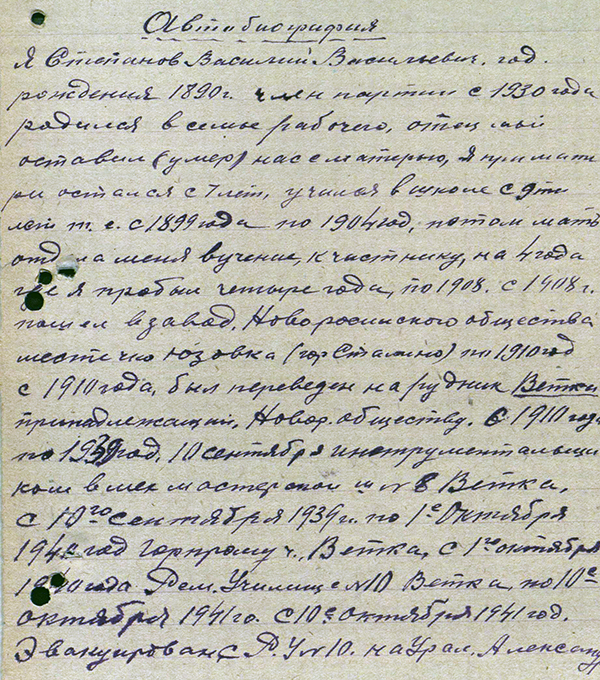 Автобиография
Я Степанов Василий Васильевич. год.
рождения 1890г. член партии с 1930 года
родился в семье рабочего, отец мой
оставил (умер) нас с матерью, я при мате
ри остался с 7 лет, учился в школе с 9ти
лет т. е. с 1899 года по 1904 год, потом мать
отдала меня в учение, к частнику, на 4 года
где я пробыл четыре года, по 1908. с 1908 г.
пошел в завод, Новоросийского общества
местечко Юзовка (гор Сталино) по 1910 год
с 1910 года, был переведен на рудник Ветки
принадлежащий, Новор. обществу. С 1910 года
по 1939 год, 10 сентября инструментальщи
ком в мех мастерской ш № 8 Ветка,
с 10го сентября 1939 г. по 1е Октября
1940 год Горпрому ч., Ветка, с 1го октября
1940 года Рем. Училище №10 Ветка, по 10е
октября 1941 го. с 10е октября 1941 год.
Эвакуирован с Р. У №10. на Урал. Александ